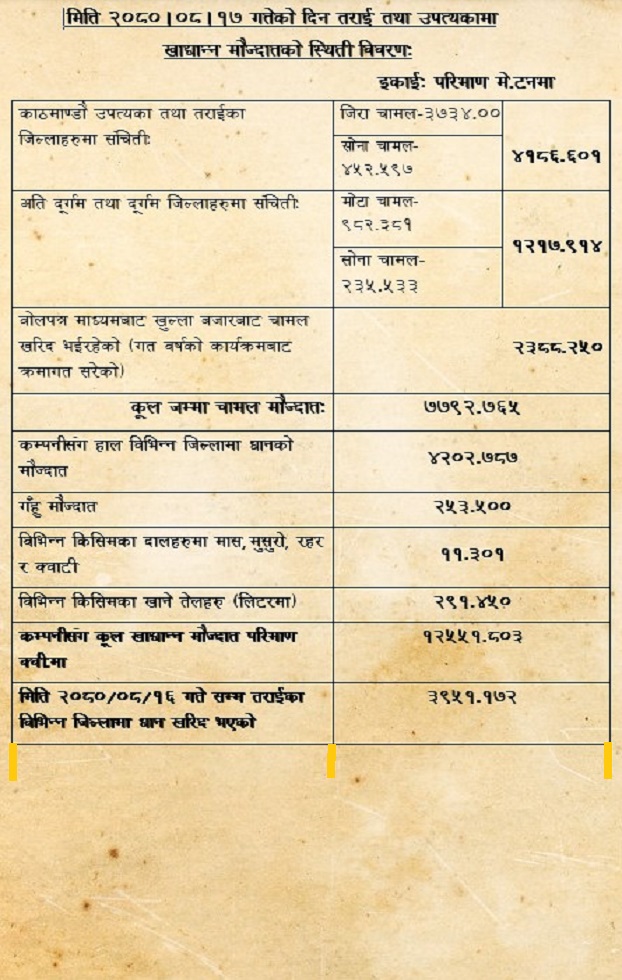 मिति २०८०।०८।१७ गतेको दिन तराई तथा उपत्यकामा
खाद्यान्न मौज्दातको स्थिती विवरणः
इकाईः परिमाण मे.टनमा
काठमाण्डौ उपत्यका तथा तराईका
जिल्लाहरुमा संचितीः
जिरा चामल-३७३४.००
सोना चामल-
४५२.५९७
४१८६.६०१
अति दूर्गम तथा दूर्गम जिल्लाहरुमा संचितीः
मोटा चामल-
९८२.३८१
सोना चामल-
२३५.५३३
१२१७.९१४
वोलपत्र माध्यमबाट खुल्ला बजारबाट चामल
खरिद भईरहेको (गत बर्षको कार्यक्रमबाट
क्रमागत सरेको)
२३८८.२५०
कूल जम्मा चामल मौज्दातः
७७९२.७६५
कम्पनीसंग हाल विभिन्न जिल्लामा धानको
मौज्दात
४२०२.७८७
गहुँ मौज्दात
२५३.५००
विभिन्न किसिमका दालहरुमा मास, मुसुरो, रहर
र क्वाटी
११.३०१
विभिन्न किसिमका खाने तेलहरु (लिटरमा)
२९१.४५०
कम्पनीसंग कूल खाद्यान्न मौज्दात परिमाण
क्वी.मा
१२५५१.८०३
मिति २०८०/०८/१६ गते सम्म तराईका
विभिन्न जिल्लामा धान खरिद भएको
३९५१.१७२